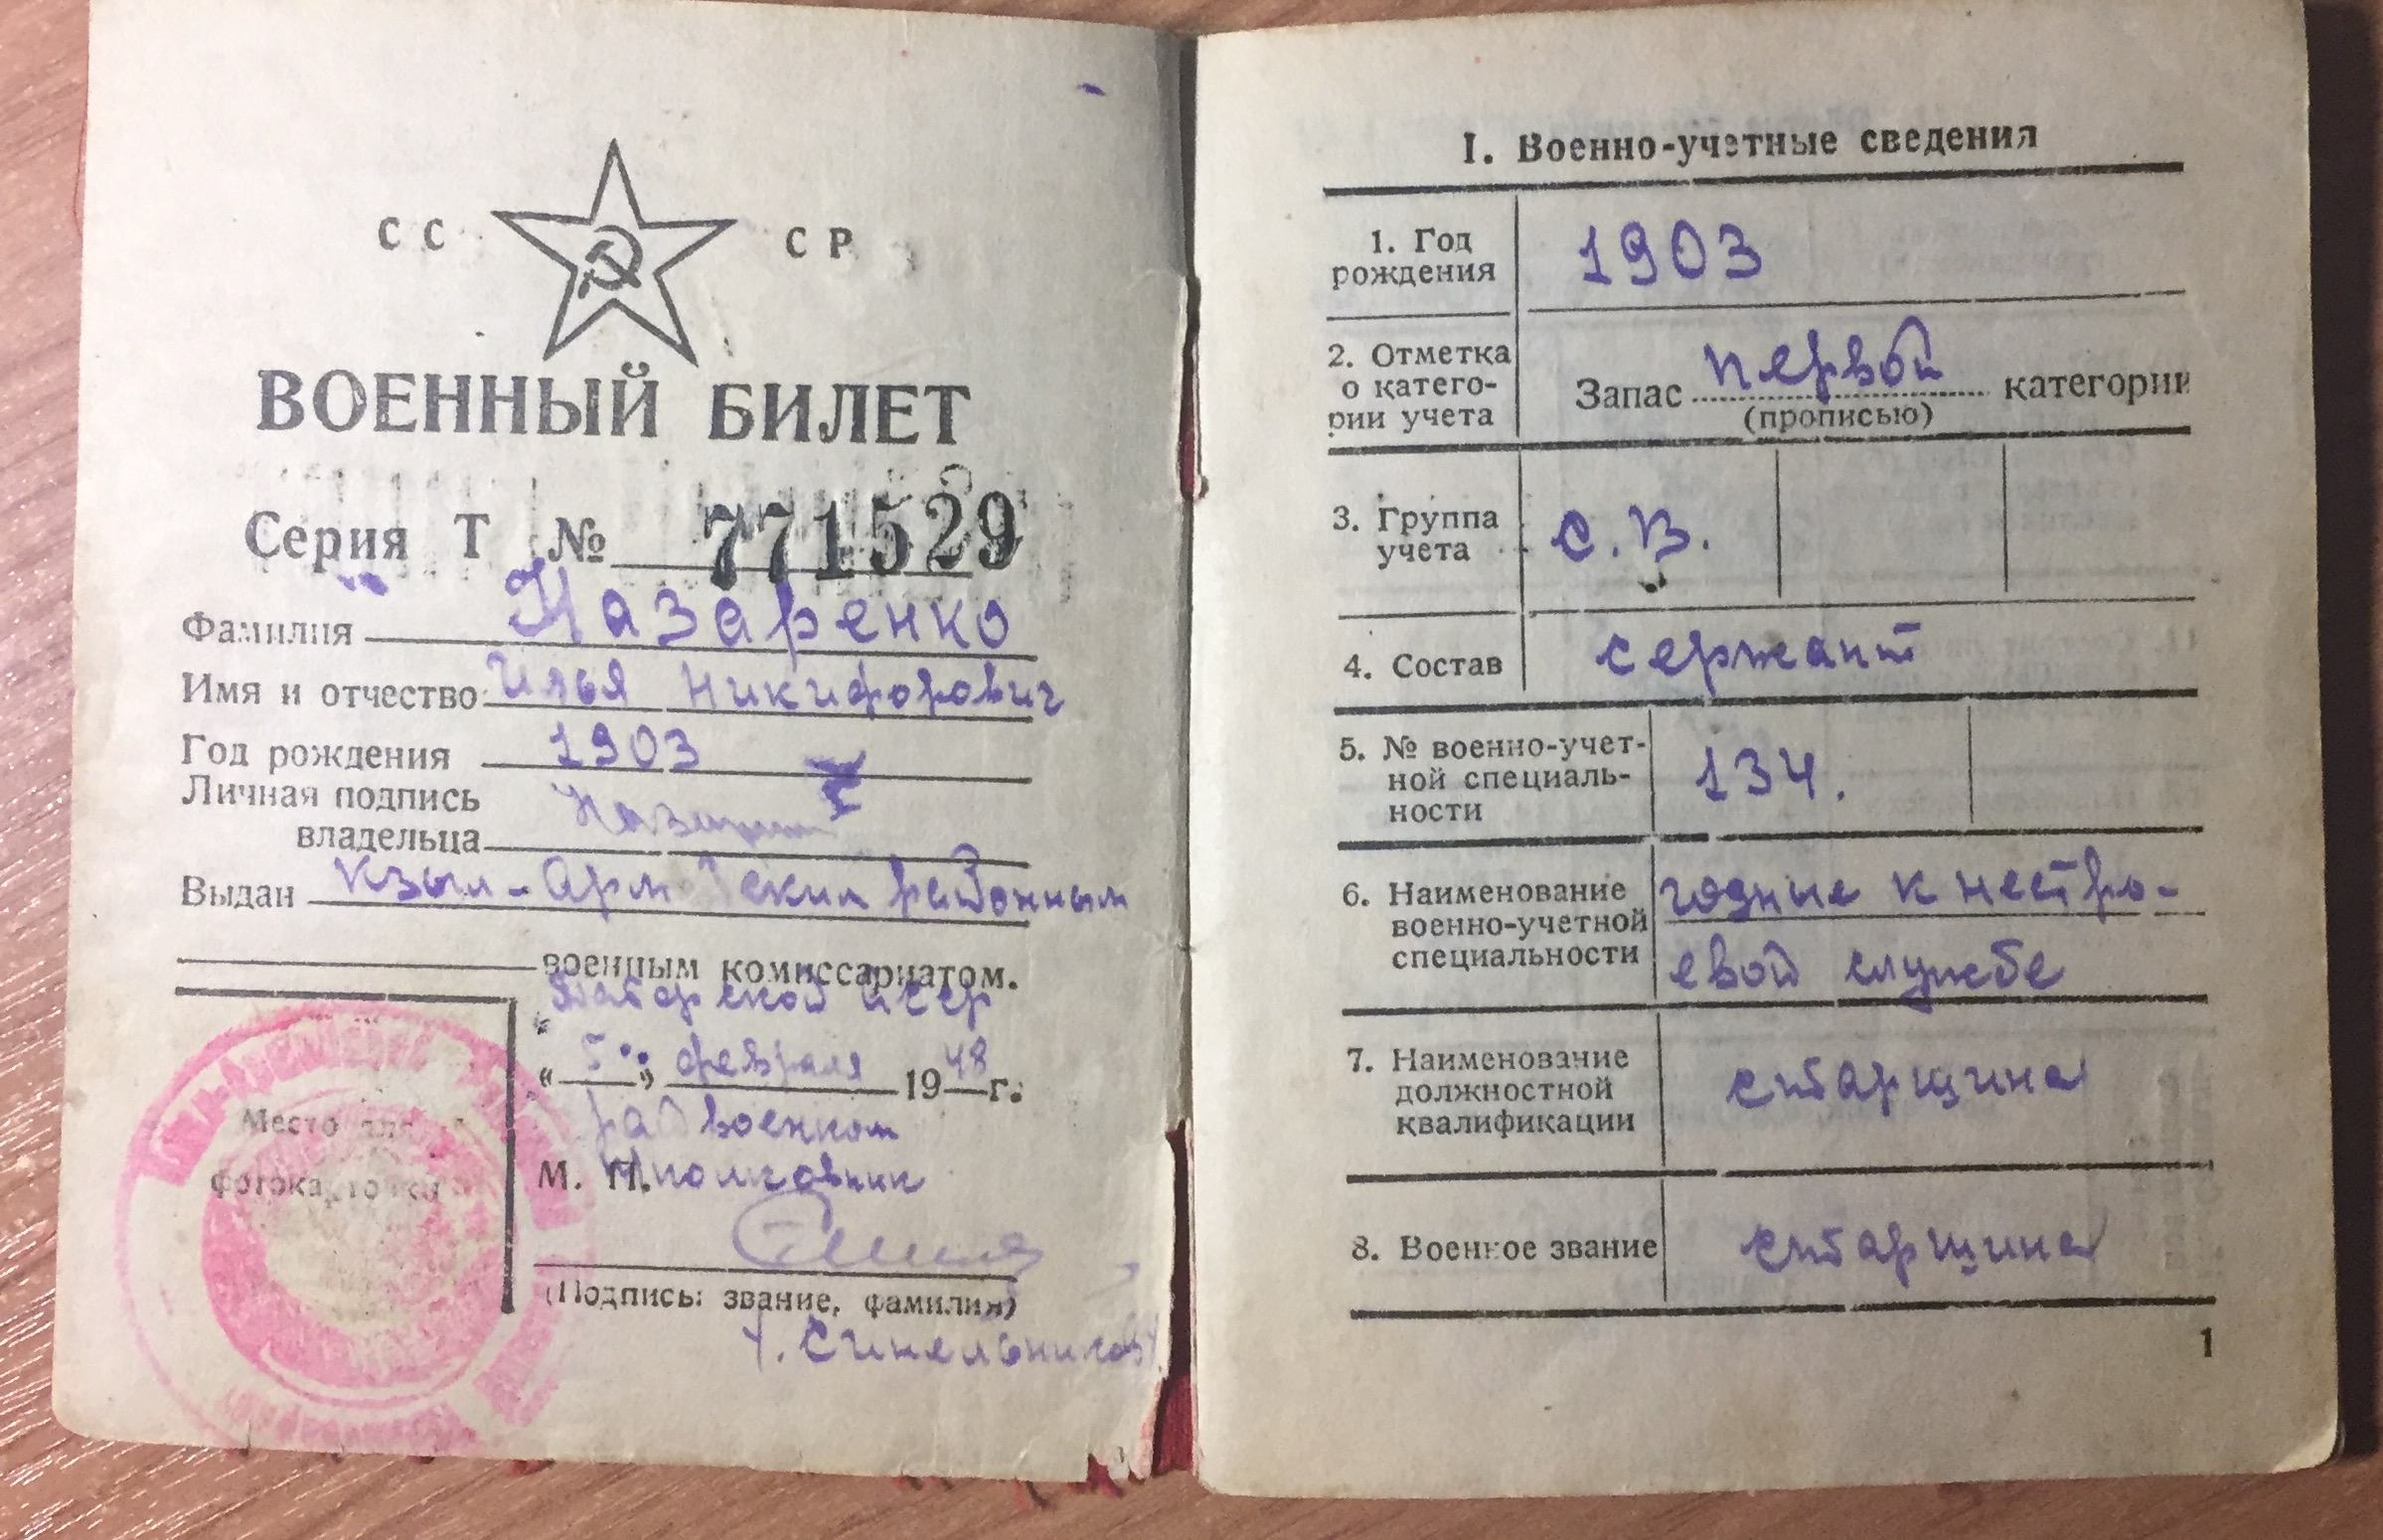 СС СР
ВОЕННЫЙ БИЛЕТ
Серия Т № 771529
Фамилия Назаренко
Имя и отчество Илья Никифорович
Год рождения 1903
Личная подпись
владельца
Выдан Кзыл-Армейским районным
военным комиссариатом.
Татарской АССР
«5» февраля 1948 г.
райвоенком
М. П. п/полковник
Место для
фотокарточки
(Подпись: звание, фамилия)
Синельников
I. Военно-учетные сведения
1. Год
рождения
1903
2. Отметка
о катего-
рии учета
Запас первой категории
(прописью)
3. Группа
учета
С.В.
4. Состав
сержант
5. № военно-учет-
ной специаль-
ности
134.
6. Наименование
военно-учетной
специальности
годные к нестро-
евой службе
7. Наименование
должностной
квалификации
старшина
8. Военное звание
старшина
1